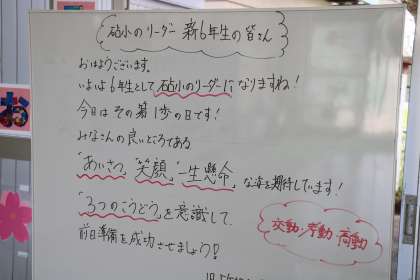 砧小のリーダー 新6年生の皆さん
おはようございます。
いよいよ6年生として砧小のリーダーになりますね!
今日はその第1歩の日です!
みなさんの良いところである
「あいさつ」「笑顔」「一生懸命」な姿を期待しています!
「3つのこうどう」を意識して、
前日準備を成功させましょう!!
交動・考動・高動
お